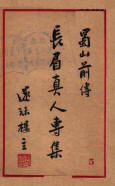 蜀山前傳
長眉真人專集
還珠樓主
5